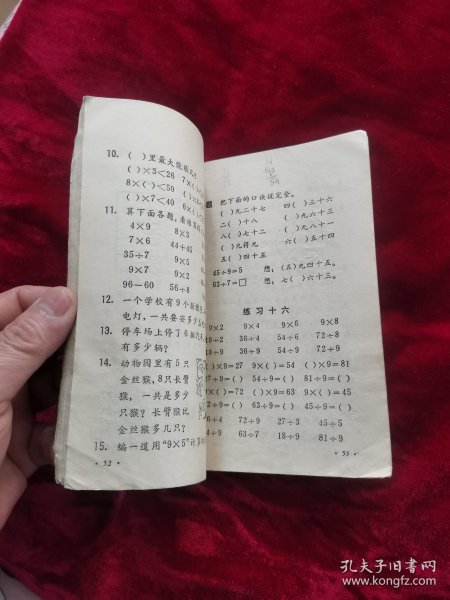 10. ( )里最大能填几?
( )×3<26 7×(
8×( )<50 (
( )×7<40 6×(
11. 算下面各题,看谁算得
4×9 8×3
7×6 44+45
35÷7 9×5
9×7 9×2
96-60 56÷8
12. 一个学校有9个新教室
电灯,一共要安多少
13. 停车场上停了6
有多少辆?
14. 动物园里有5只
金丝猴,8只长臂
猴,一共是多少
只猴?长臂猴比
金丝猴多几只?
15. 编一道用“9×5”计算的
·52·
把下面的口诀说完全。
( )九二十七 四( )三十六
二( )十八 ( )九六十三
( )八七十二 ( )九八十一
( )九得九 六( )五十四
五( )四十五
45÷9=5 想:(五)九四十五。
63÷7=□ 想:七( )六十三。
练习十六
9×2 9×4 9×6 9×8
18÷9 36÷9 54÷9 72÷9
18÷2 36÷4 54÷6 72÷8
( )×9=27 9×( )=54 ( )×9=81
27÷9=( ) 54÷9=( ) 81÷9=( )
÷9=( ) 63÷9=( ) 45÷9=( )
÷4 72÷9 27÷3 45÷5
64÷8 63÷7 18÷9 81÷9
·53·
孔夫子旧书网
www.kongfz.com